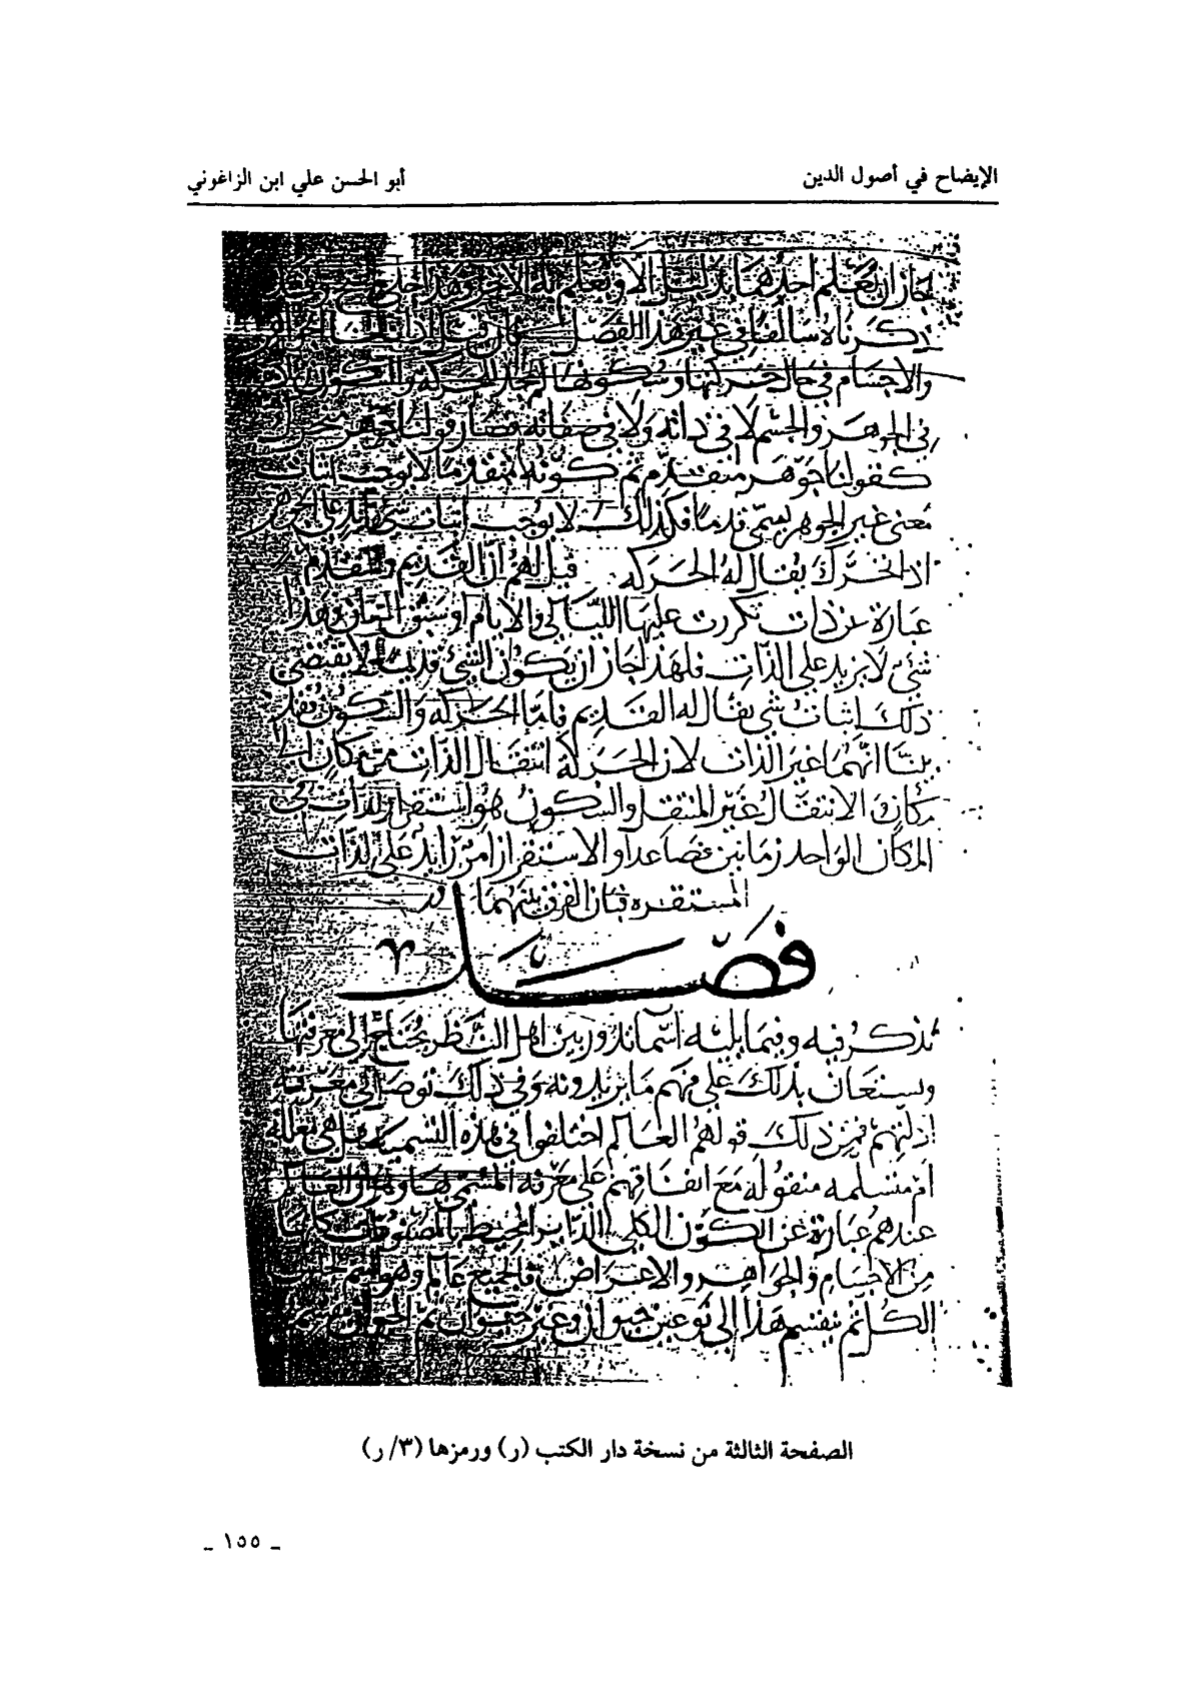 الإيضاح في أصول الدين
أبو الحسن علي ابن الزاغوني
جاز ان يعلم احدهما بذلك الا ويعلم به الاخر وهذا
ذكرناه سالفا في غير هذا الفصل فان قيل
والاجسام في حال حركتها وسكونها
في الجوهر والجسم لا في ذاته ولا في صفاته فصار قولنا جوهر متحرك
كقولنا جوهر متقدم ثم كونه متقدما لا يوجب اثبات
معنى غير الجوهر يسمى قدما فكذلك لا يوجب اثبات
اذ التحرك يقال له الحركة قيل لهم ان القديم والمتقدم
عبارة عن ذات تكررت عليها الليالي والايام او سبق الزمان وهذا
شيء لا يزيد على الذات فلهذا جاز ان يكون الشيء قديما لا يقتضي
ذلك اثبات شي يقال له القديم فاما الحركة والسكون فقد
بينا انهما غير الذات لان الحركة انتقال الذات من مكان الى
مكان والانتقال غير المنتقل والسكون هو استقرار الذات في
المكان الواحد زمانين فصاعدا والاستقرار امر زايد على الذات
المستقره فبان الفرق بينهما
فصل
نذكر فيه وفيما يليه اسما تدور بين اهل النظر يحتاج الى معرفتها
ويستعان بذلك على فهم ما يريدونه وفي ذلك توصل الى معرفة
ادلتهم فمن ذلك قولهم العالم اختلفوا في هذه التسمية هل هي معللة
ام متسلمه منقولة مع اتفاقهم على معرفة المسمى بها وهو ان العالم
عندهم عبارة عن الكون الكلي الداير المحيط بالمصنوعات كلها
من الاجسام والجواهر والاعراض فالجميع عالم وهو اسم
الكل ثم ينقسم هذا الى نوعين حيوان وغير حيوان ثم الحيوان
الصفحة الثالثة من نسخة دار الكتب (ر) ورمزها (٣/ ر)
ـ ١٥٥ ـ